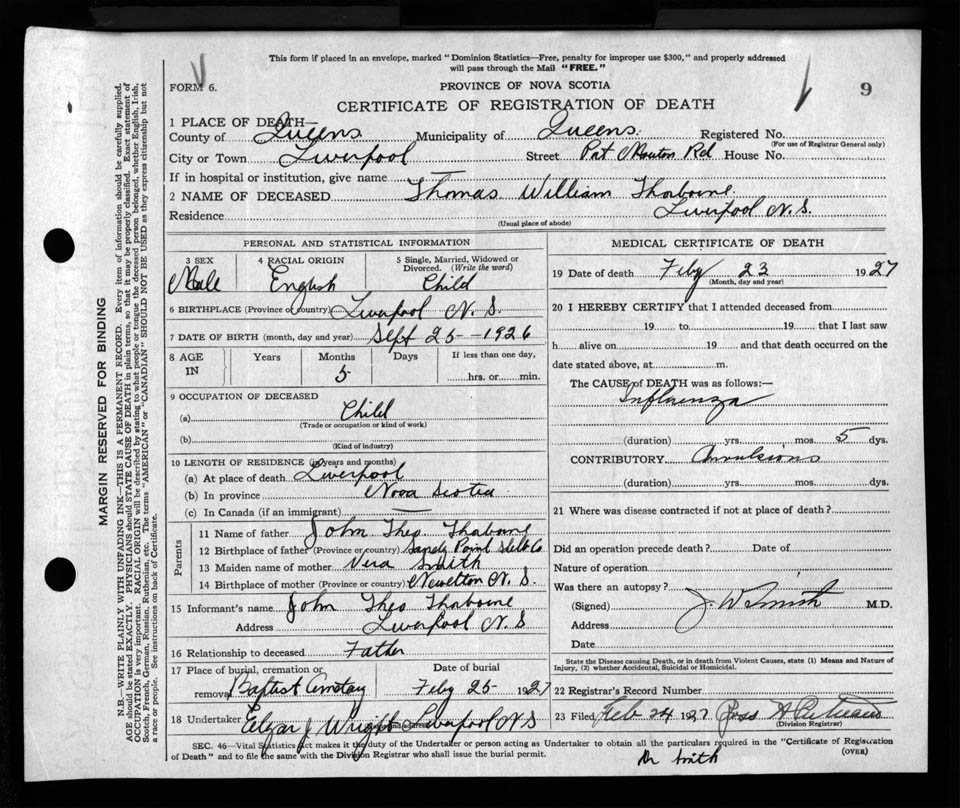 This form if placed in an envelope, marked "Dominion Statistics—Free, penalty for improper use $300," and properly addressed
will pass through the Mail "FREE."
FORM 6.
PROVINCE OF NOVA SCOTIA
9
CERTIFICATE OF REGISTRATION OF DEATH
1 PLACE OF DEATH—
County of Queens Municipality of Queens Registered No.
(For use of Registrar General only)
City or Town Liverpool Street Prt Mouton Rd House No.
If in hospital or institution, give name —
2 NAME OF DECEASED Thomas William Thorborne
Residence Liverpool N.S.
(Usual place of abode)
PERSONAL AND STATISTICAL INFORMATION
3 SEX 4 RACIAL ORIGIN 5 Single, Married, Widowed or
Divorced. (Write the word)
Male English Child
6 BIRTHPLACE (Province or country) Liverpool N. S.
7 DATE OF BIRTH (month, day and year) Sept 25-1926
8 AGE Years Months Days If less than one day,
IN 5 hrs. or min.
9 OCCUPATION OF DECEASED
(a) Child
(Trade or occupation or kind of work)
(b)
(Kind of industry)
10 LENGTH OF RESIDENCE (in years and months)
(a) At place of death Liverpool
(b) In province Nova Scotia
(c) In Canada (if an immigrant) —
Parents
11 Name of father John Theo Thorborne
12 Birthplace of father (Province or country) Sandy Point Shelb Co
13 Maiden name of mother Vera Smith
14 Birthplace of mother (Province or country) Newellton N. S.
15 Informant's name John Theo Thorborne
Address Liverpool N S
16 Relationship to deceased Father
17 Place of burial, cremation or Date of burial
removal Baptist Cemetery Feby 25- 1927
18 Undertaker Edgar J Wright Liverpool N S
MEDICAL CERTIFICATE OF DEATH
19 Date of death Feby 23 1927
(Month, day and year)
20 I HEREBY CERTIFY that I attended deceased from
19 to 19 , that I last saw
h alive on 19 and that death occurred on the
date stated above, at m.
The CAUSE of DEATH was as follows:—
Influenza
(duration) yrs. mos. 5 dys.
CONTRIBUTORY Convulsions
(duration) yrs. mos. dys.
21 Where was disease contracted if not at place of death?
Did an operation precede death? Date of
Nature of operation
Was there an autopsy?
(Signed) J. W Smith M.D.
Address
Date
State the Disease causing Death, or in death from Violent Causes, state (1) Means and Nature of
Injury, (2) whether Accidental, Suicidal or Homicidal.
22 Registrar's Record Number
23 Filed Feb 24 1927
(Division Registrar)
SEC. 46—Vital Statistics Act makes it the duty of the Undertaker or person acting as Undertaker to obtain all the particulars required in the "Certificate of Registration
of Death" and to file the same with the Division Registrar who shall issue the burial permit. (OVER)
Dr Smith
MARGIN RESERVED FOR BINDING
N.B.—WRITE PLAINLY WITH UNFADING INK—THIS IS A PERMANENT RECORD. Every item of information should be carefully supplied.
AGE should be stated EXACTLY. PHYSICIANS should STATE CAUSE OF DEATH in plain terms, so that it may be properly classified. Exact statement of
OCCUPATION is very important. RACIAL ORIGIN will be described by stating to what people or tongue the deceased person belonged, whether English, Irish,
Scotch, French, German, Russian, Ruthenian, etc. The terms "AMERICAN" or "CANADIAN" SHOULD NOT BE USED as they express citizenship but not
a race or people. See instructions on back of Certificate.